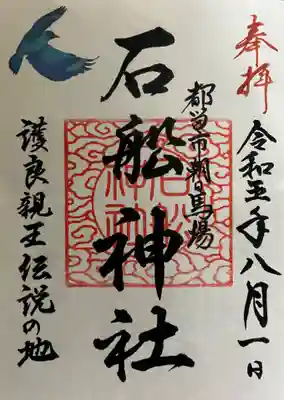 奉拝
令和五年八月一日
都留市朝日馬場
石船神社
護良親王伝説の地